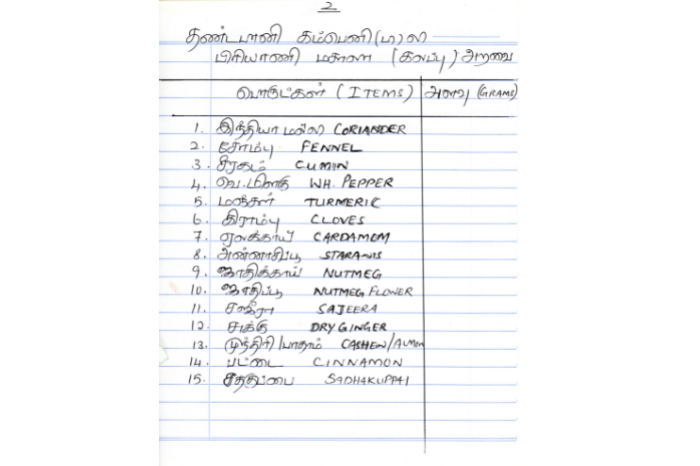 2
தண்டபாணி கம்பெனி (ப) லி
பிரியாணி மசாலா (கலப்பு) அறவை
பொருட்கள் (ITEMS) அளவு (GRAMS)
1. இந்தியா மல்லி CORIANDER
2. சோம்பு FENNEL
3. சீரகம் CUMIN
4. வெ.மிளகு WH. PEPPER
5. மஞ்சள் TURMERIC
6. கிராம்பு CLOVES
7. ஏலக்காய் CARDAMOM
8. அண்ணாசிப்பூ STARANIS
9. ஜாதிக்காய் NUTMEG
10. ஜாதிப்பூ NUTMEG FLOWER
11. சாஜீரா SAJEERA
12. சுக்கு DRY GINGER
13. முந்திரி/பாதாம் CASHEW/ALMON
14. பட்டை CINNAMON
15. சதகுப்பை SADHAKUPPAI